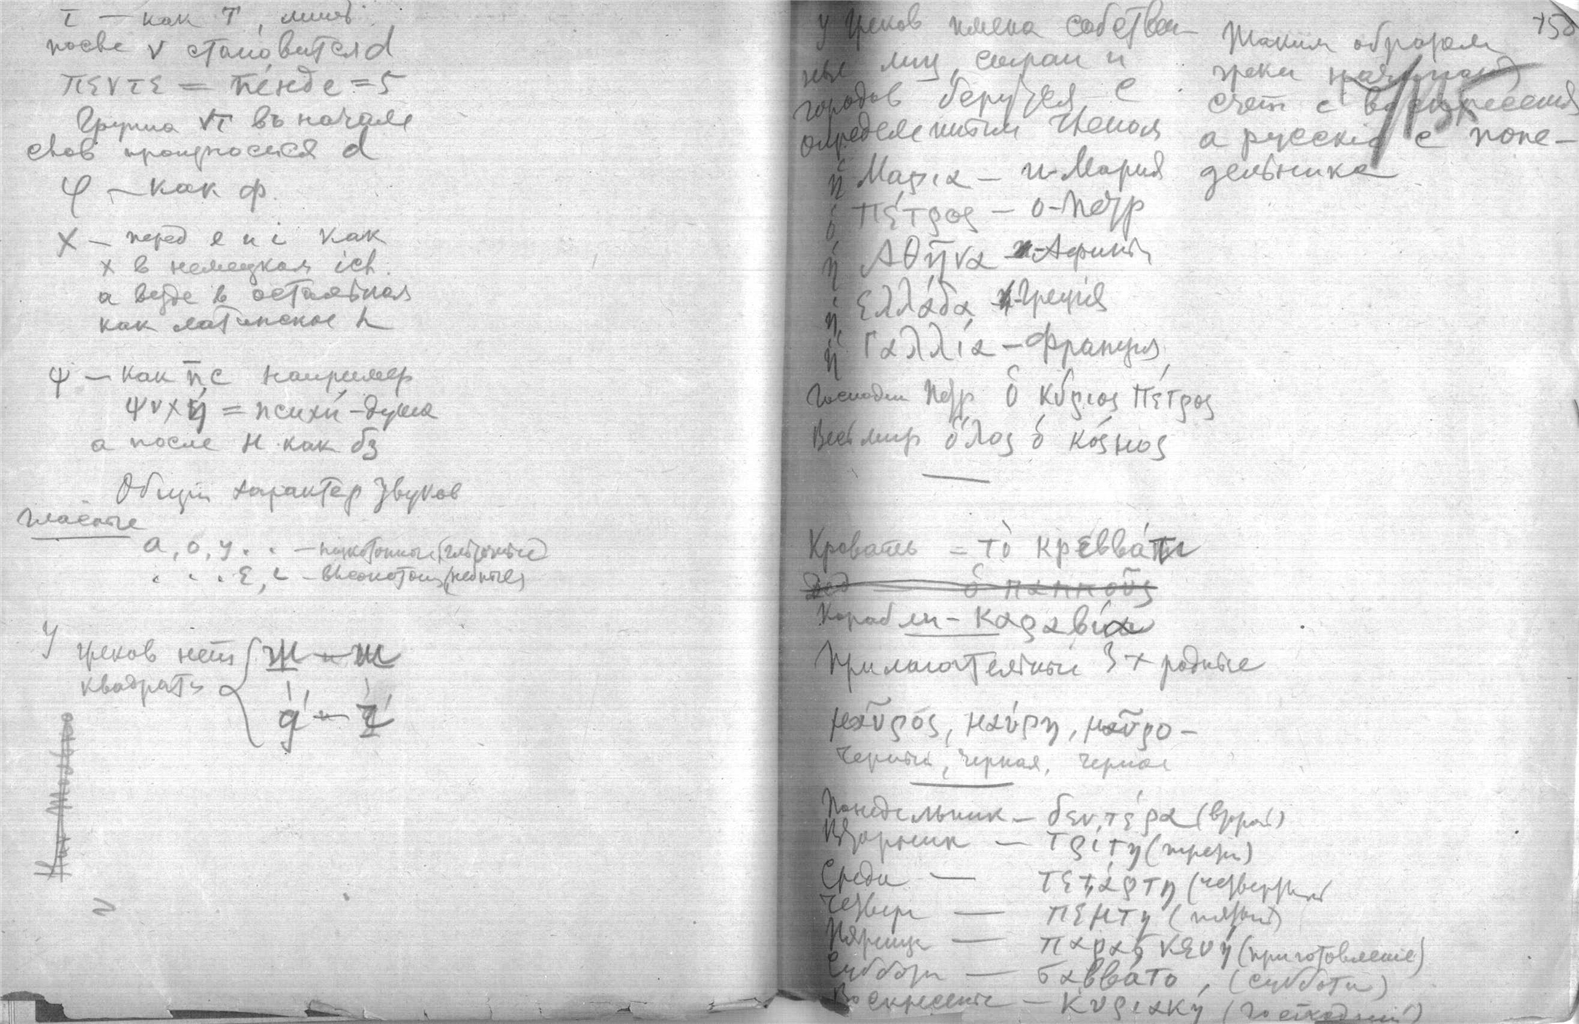 τ – как т, лишь
после ν становится d
πεντε = пéнде = 5
Группа ντ в начале
слов произносится d
φ – как ф.
χ – перед е и i как
х в немецком ich.
а везде в остальном
как латинское h
ψ – как пс например
ψυχή = психи́ – душа
а после н как бз
Общий характер звуков
гласные
а, о, у . . – низкотонные
. . . ε, ι – высокотон. (небные)
У греков нет
квадрата
ш – ж
ч – щ
У греков имена собствен-
ные лиц, стран и
городов берутся с
определенным членом
ἡ Μαρια – и-Мария
ὁ Πέτρος – о-Петр
ἡ Αθῆνα – Афины
ἡ Ελλάδα – Греція
ἡ Γαλλία – Франция
Господин Петр ὁ κύριος Πέτρος
Весь мир ὅλος ὁ κόσμος
Кровать = τὸ κρεββάτι
Дед ὁ παππούς
Корабли – Καραβια
Прилагательные 3х родные
μαῦρος, μαύρη, μαῦρο –
Черный, черная, черное
Понедельник – δευτέρα (второй)
Вторник – Τρίτη (третий)
Среда – τετάρτη (четвертый
Четверг – πέμπτη (пятый)
Пятница – παρασκευή (приготовление)
Суббота – σαββάτο, (суббота)
Воскресенье – Κυριακή (господний)
Таким образом
греки начинают
счет с воскресения
а русскіе с поне-
дельника